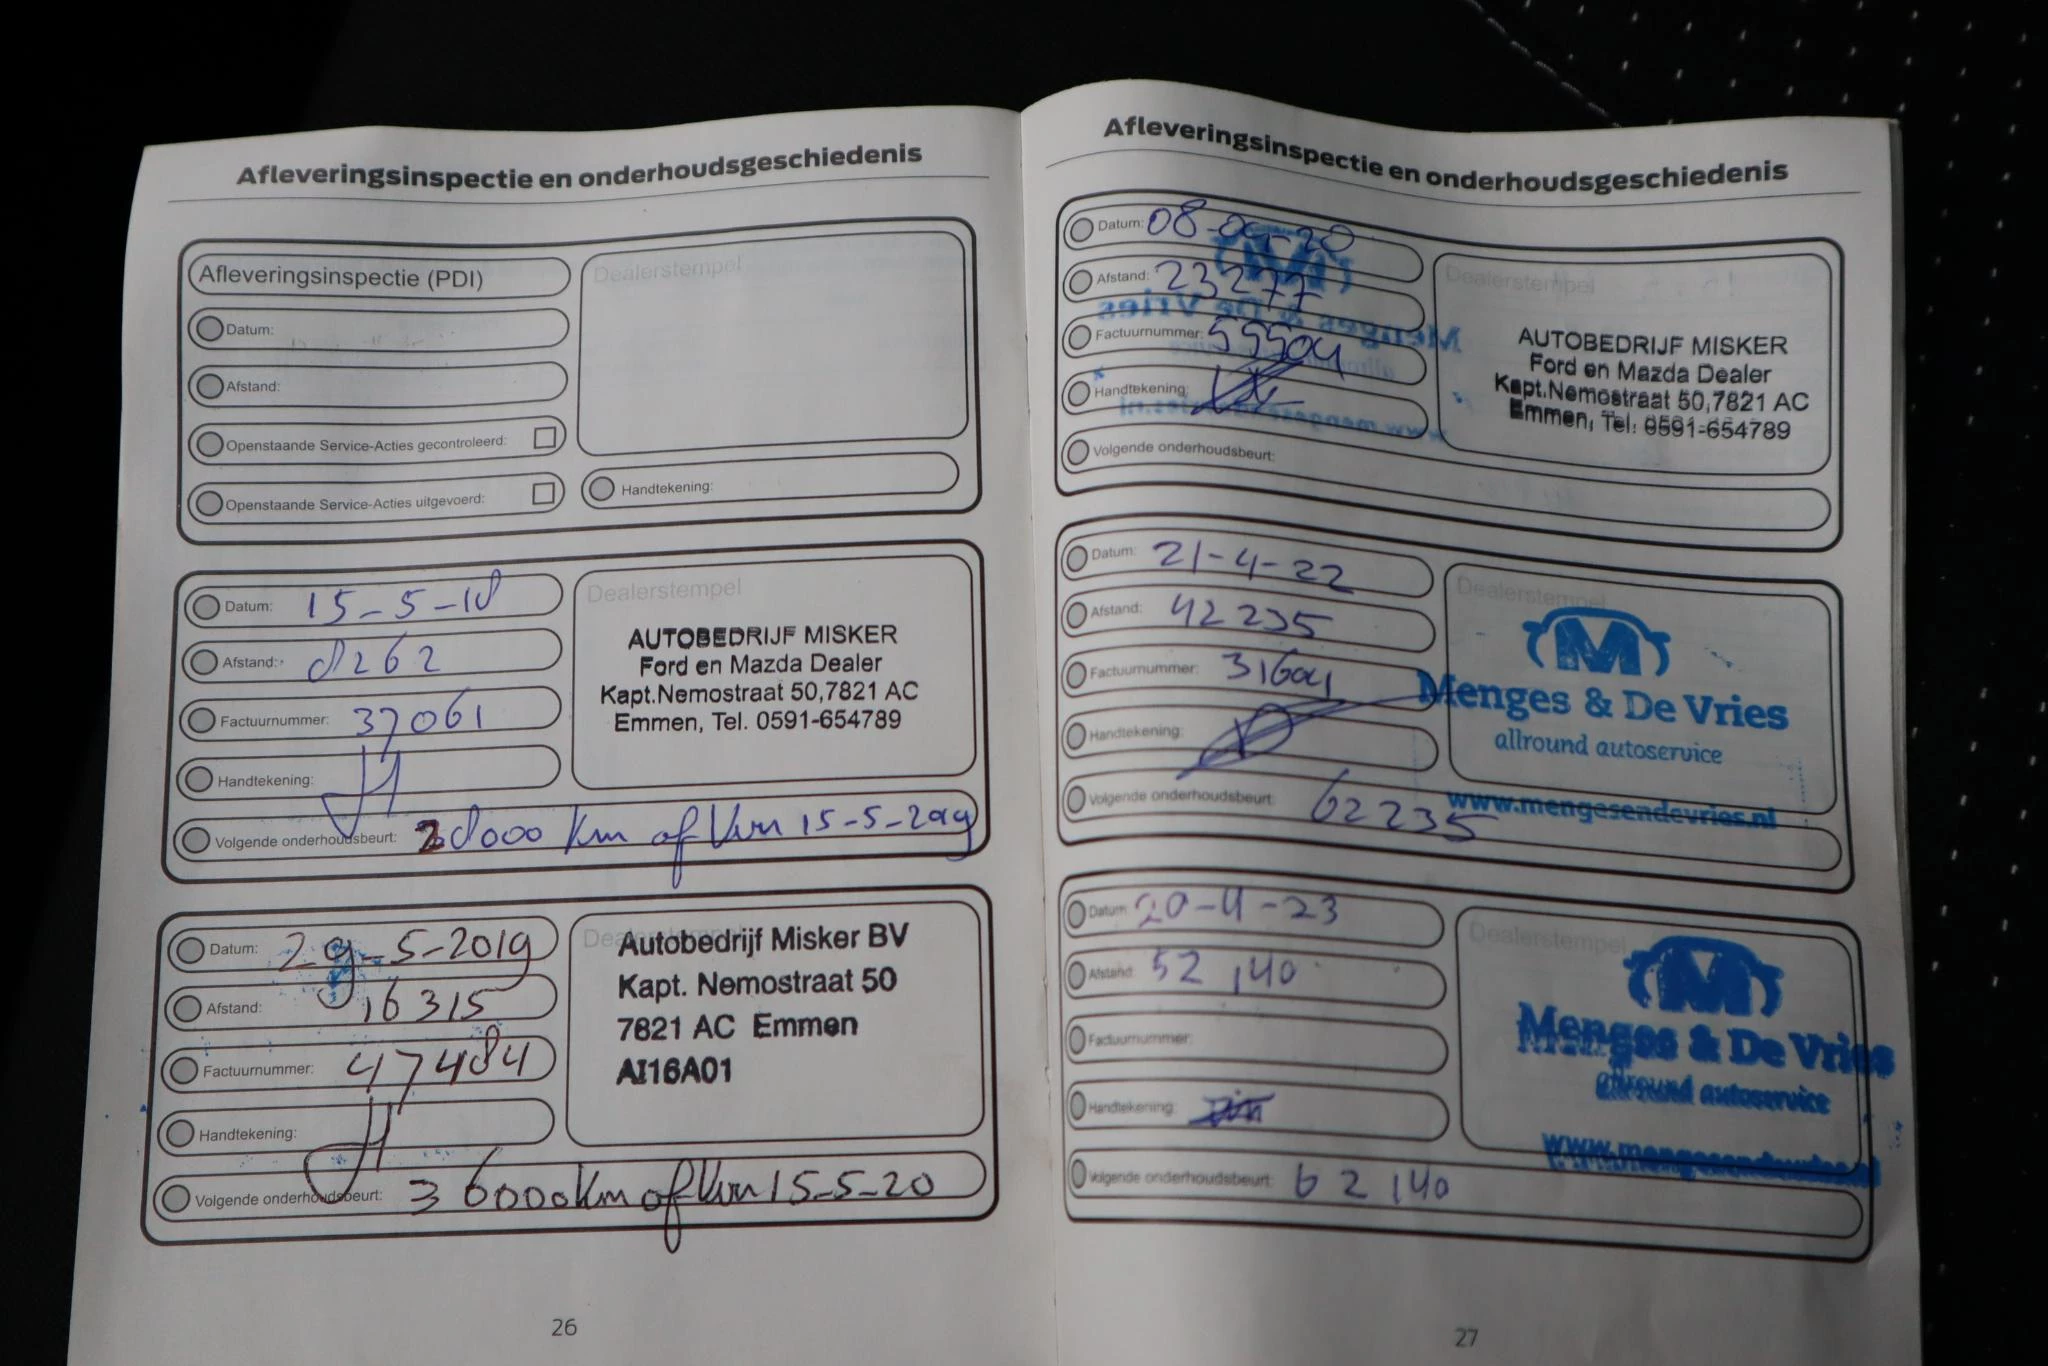 Afleveringsinspectie en onderhoudsgeschiedenis
Afleveringsinspectie (PDI)
Dealerstempel
Datum:
Afstand:
Openstaande Service-Acties gecontroleerd:
Openstaande Service-Acties uitgevoerd:
Handtekening:
Datum: 15-5-18
Afstand: 8262
Factuurnummer: 37061
Handtekening:
Volgende onderhoudsbeurt: 28000 km of Vkm 15-5-2019
Dealerstempel
AUTOBEDRIJF MISKER
Ford en Mazda Dealer
Kapt.Nemostraat 50,7821 AC
Emmen, Tel. 0591-654789
Datum: 29-5-2019
Afstand: 16315
Factuurnummer: 47484
Handtekening:
Volgende onderhoudsbeurt: 36000 km of Vkm 15-5-20
Dealerstempel
Autobedrijf Misker BV
Kapt. Nemostraat 50
7821 AC Emmen
AI16A01
26
Afleveringsinspectie en onderhoudsgeschiedenis
Datum: 08-09-20
Afstand: 23277
Factuurnummer: 59504
Handtekening:
Volgende onderhoudsbeurt:
Dealerstempel
AUTOBEDRIJF MISKER
Ford en Mazda Dealer
Kapt.Nemostraat 50,7821 AC
Emmen, Tel. 0591-654789
Datum: 21-4-22
Afstand: 42235
Factuurnummer: 31604
Handtekening:
Volgende onderhoudsbeurt: 62235
Dealerstempel
M
Menges & De Vries
allround autoservice
www.mengesendevries.nl
Datum: 20-4-23
Afstand: 52140
Factuurnummer:
Handtekening:
Volgende onderhoudsbeurt: 62140
Dealerstempel
M
Menges & De Vries
allround autoservice
www.mengesendevries.nl
27